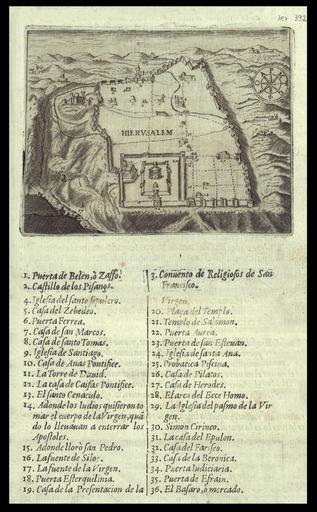 Jer 392
HIERVSALEM
1. Puerta de Belen, ò Zaffo.
2. Castillo de los Pisanos.
4. Iglesia del santo sepulcro.
5. Casa del Zebedeo.
6. Puerta Ferrea.
7. Casa de san Marcos.
8. Casa de santo Tomas.
9. Iglesia de Santiago.
10. Casa de Anas Pontifice.
11. La Torre de Dauid.
12. La casa de Caifas Pontifice.
13. El santo Cenaculo.
14. Adonde los Iudios quisieron to
mar el cuerpo de la Virgen, quã
do lo lleuauan a enterrar los
Apostoles.
15. Adonde llorò san Pedro.
16. La fuente de Siloe.
17. La fuente de la Virgen.
18. Puerta Esterquilinia.
19. Casa de la Presentacion de la
3. Conuento de Religiosos de San
Francisco.
Virgen.
20. Plaça del Templo.
21. Templo de Salomon.
22. Puerta Aurea.
23. Puerta de san Esteuan.
24. Iglesia de santa Ana.
25. Probatica Piscina.
26. Casa de Pilatos.
27. Casa de Herodes.
28. El arco del Ecce Homo.
29. La Iglesia del pasmo de la Vir
gen.
30. Simon Cirineo.
31. La casa del Epulon.
32. Casa del Fariseo.
33. Casa de la Beronica.
34. Puerta Iudiciaria.
35. Puerta de Efrain.
36. El Basaro, ò mercado.